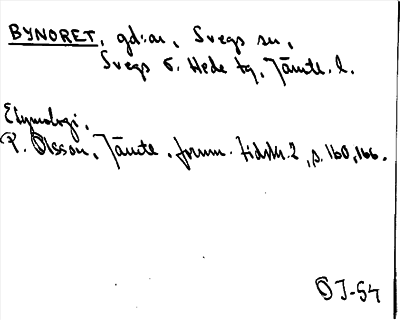 BYNORET, gd:ar, Svegs sn,
Svegs o. Hede tg, Jämtl. l.
Etymologi.
P. Olsson, Jämtl. fornm. tidskr. 2, s. 160, 166.
OJ-54